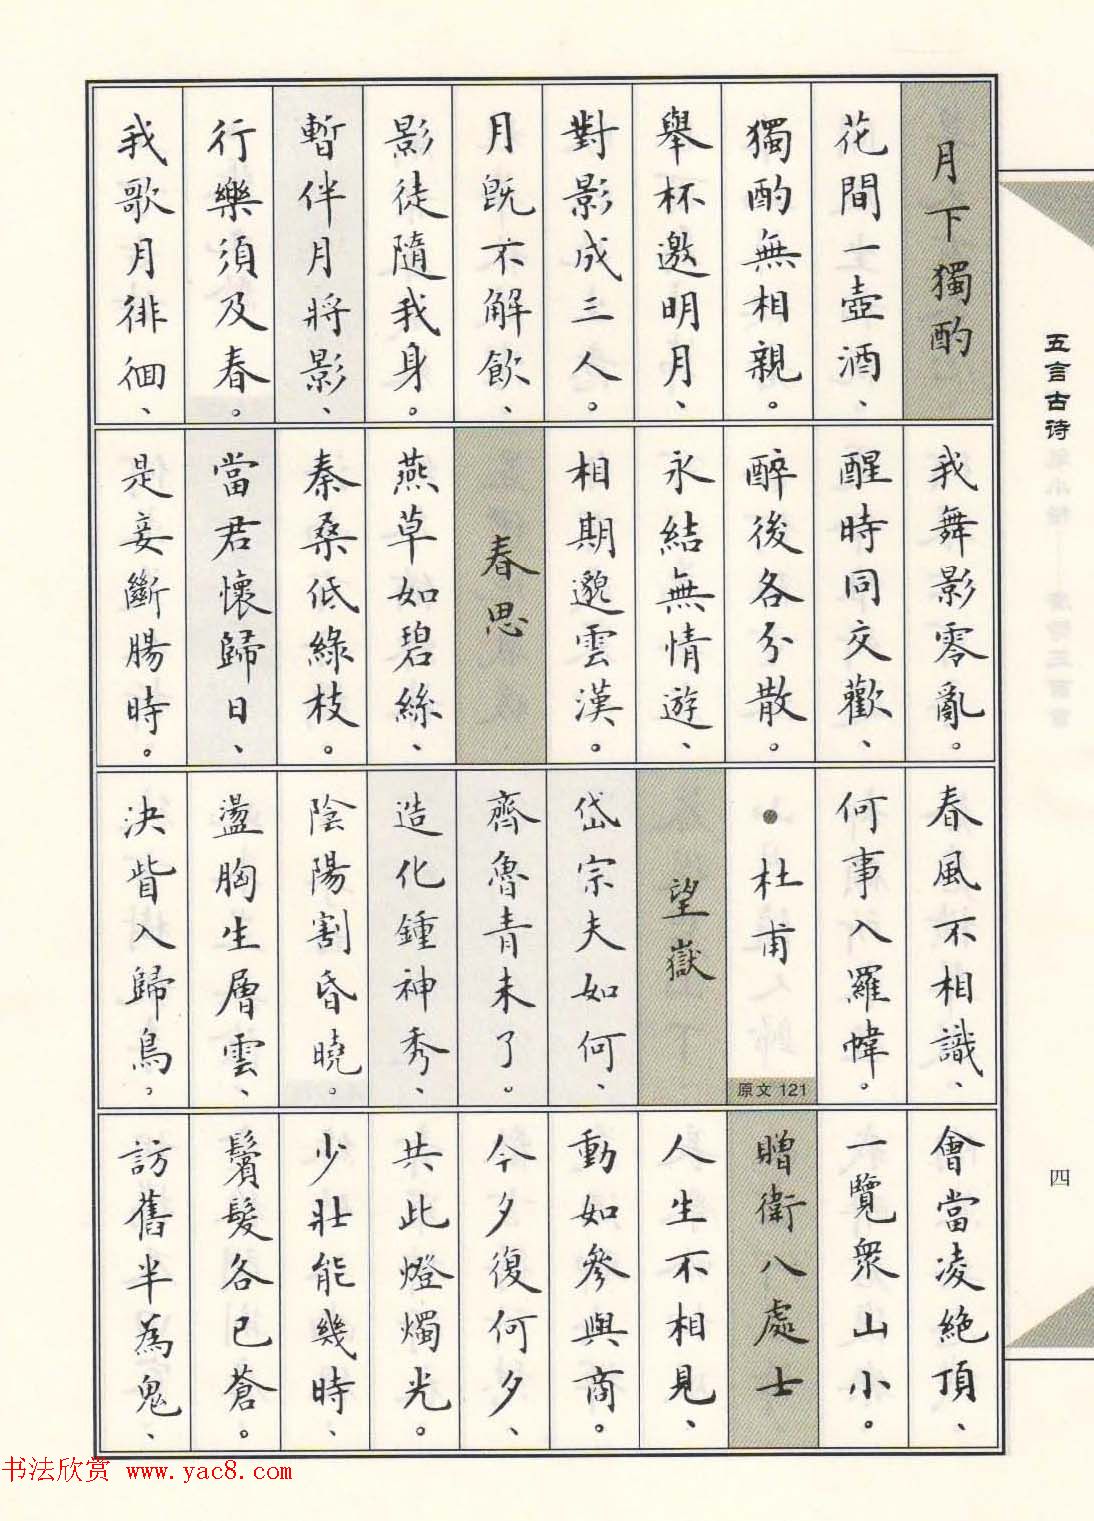 月下獨酌
花間一壺酒、
獨酌無相親。
舉杯邀明月、
對影成三人。
月既不解飲、
影徒隨我身。
暫伴月將影、
行樂須及春。
我歌月徘徊、
我舞影零亂。
醒時同交歡、
醉後各分散。
永結無情遊、
相期邈雲漢。
春思
燕草如碧絲、
秦桑低綠枝。
當君懷歸日、
是妾斷腸時。
春風不相識、
何事入羅幃。
●杜甫
原文 121
望嶽
岱宗夫如何、
齊魯青未了。
造化鍾神秀、
陰陽割昏曉。
盪胸生層雲、
決眥入歸鳥。
會當凌絕頂、
一覽眾山小。
贈衛八處士
人生不相見、
動如參與商。
今夕復何夕、
共此燈燭光。
少壯能幾時、
鬢髮各已蒼。
訪舊半為鬼、
五言古诗
四
书法欣赏 www.yac8.com